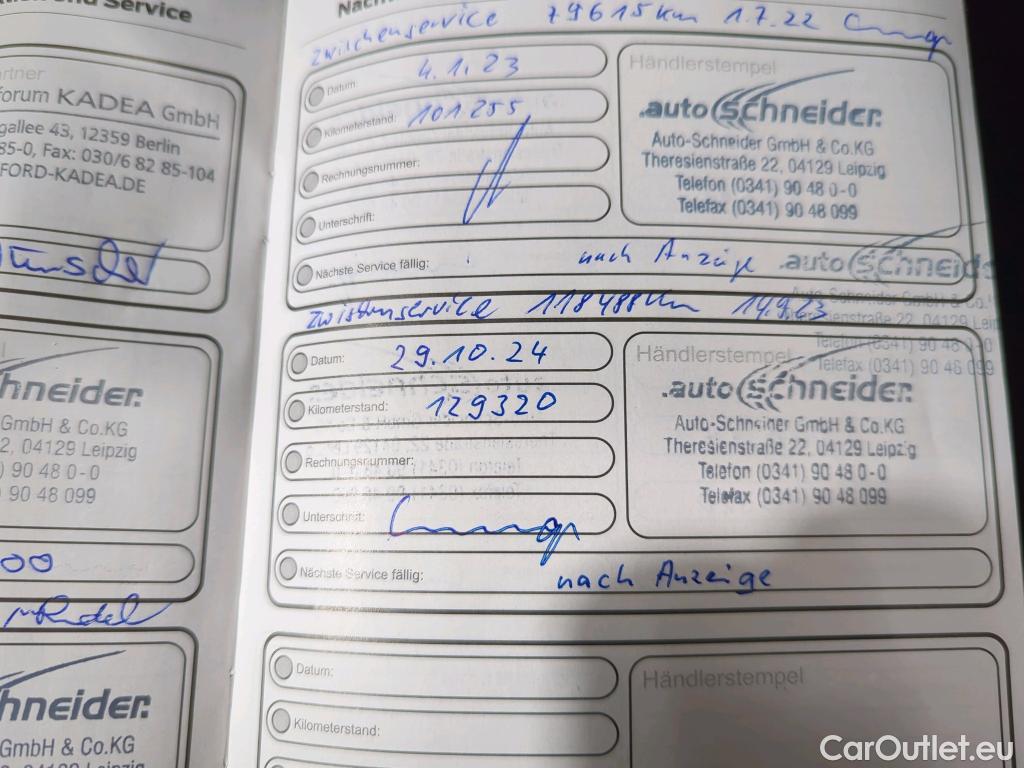 nd Service
artner
forum KADEA GmbH
gallee 43, 12359 Berlin
85-0, Fax: 030/6 82 85-104
FORD-KADEA.DE
hneider.
GmbH & Co.KG
2, 04129 Leipzig
) 90 48 0-0
) 90 48 099
00
hneider.
GmbH & Co.KG
Zwischenservice 79615km 1.7.22
Datum: 4.1.23
Kilometerstand: 101.255
Rechnungsnummer:
Unterschrift:
Nächste Service fällig: nach Anzeige
Händlerstempel
.auto Schneider.
Auto-Schneider GmbH & Co.KG
Theresienstraße 22, 04129 Leipzig
Telefon (0341) 90 48 0-0
Telefax (0341) 90 48 099
.auto Schneid
Telefon (0341) 90 48 0-0
Telefax (0341) 90 48 099
Zwischenservice 118488km 14.9.23
Datum: 29.10.24
Kilometerstand: 129320
Rechnungsnummer:
Unterschrift:
Nächste Service fällig: nach Anzeige
Händlerstempel
.auto Schneider.
Auto-Schneider GmbH & Co.KG
Theresienstraße 22, 04129 Leipzig
Telefon (0341) 90 48 0-0
Telefax (0341) 90 48 099
Datum:
Kilometerstand:
Händlerstempel
CarOutlet.eu